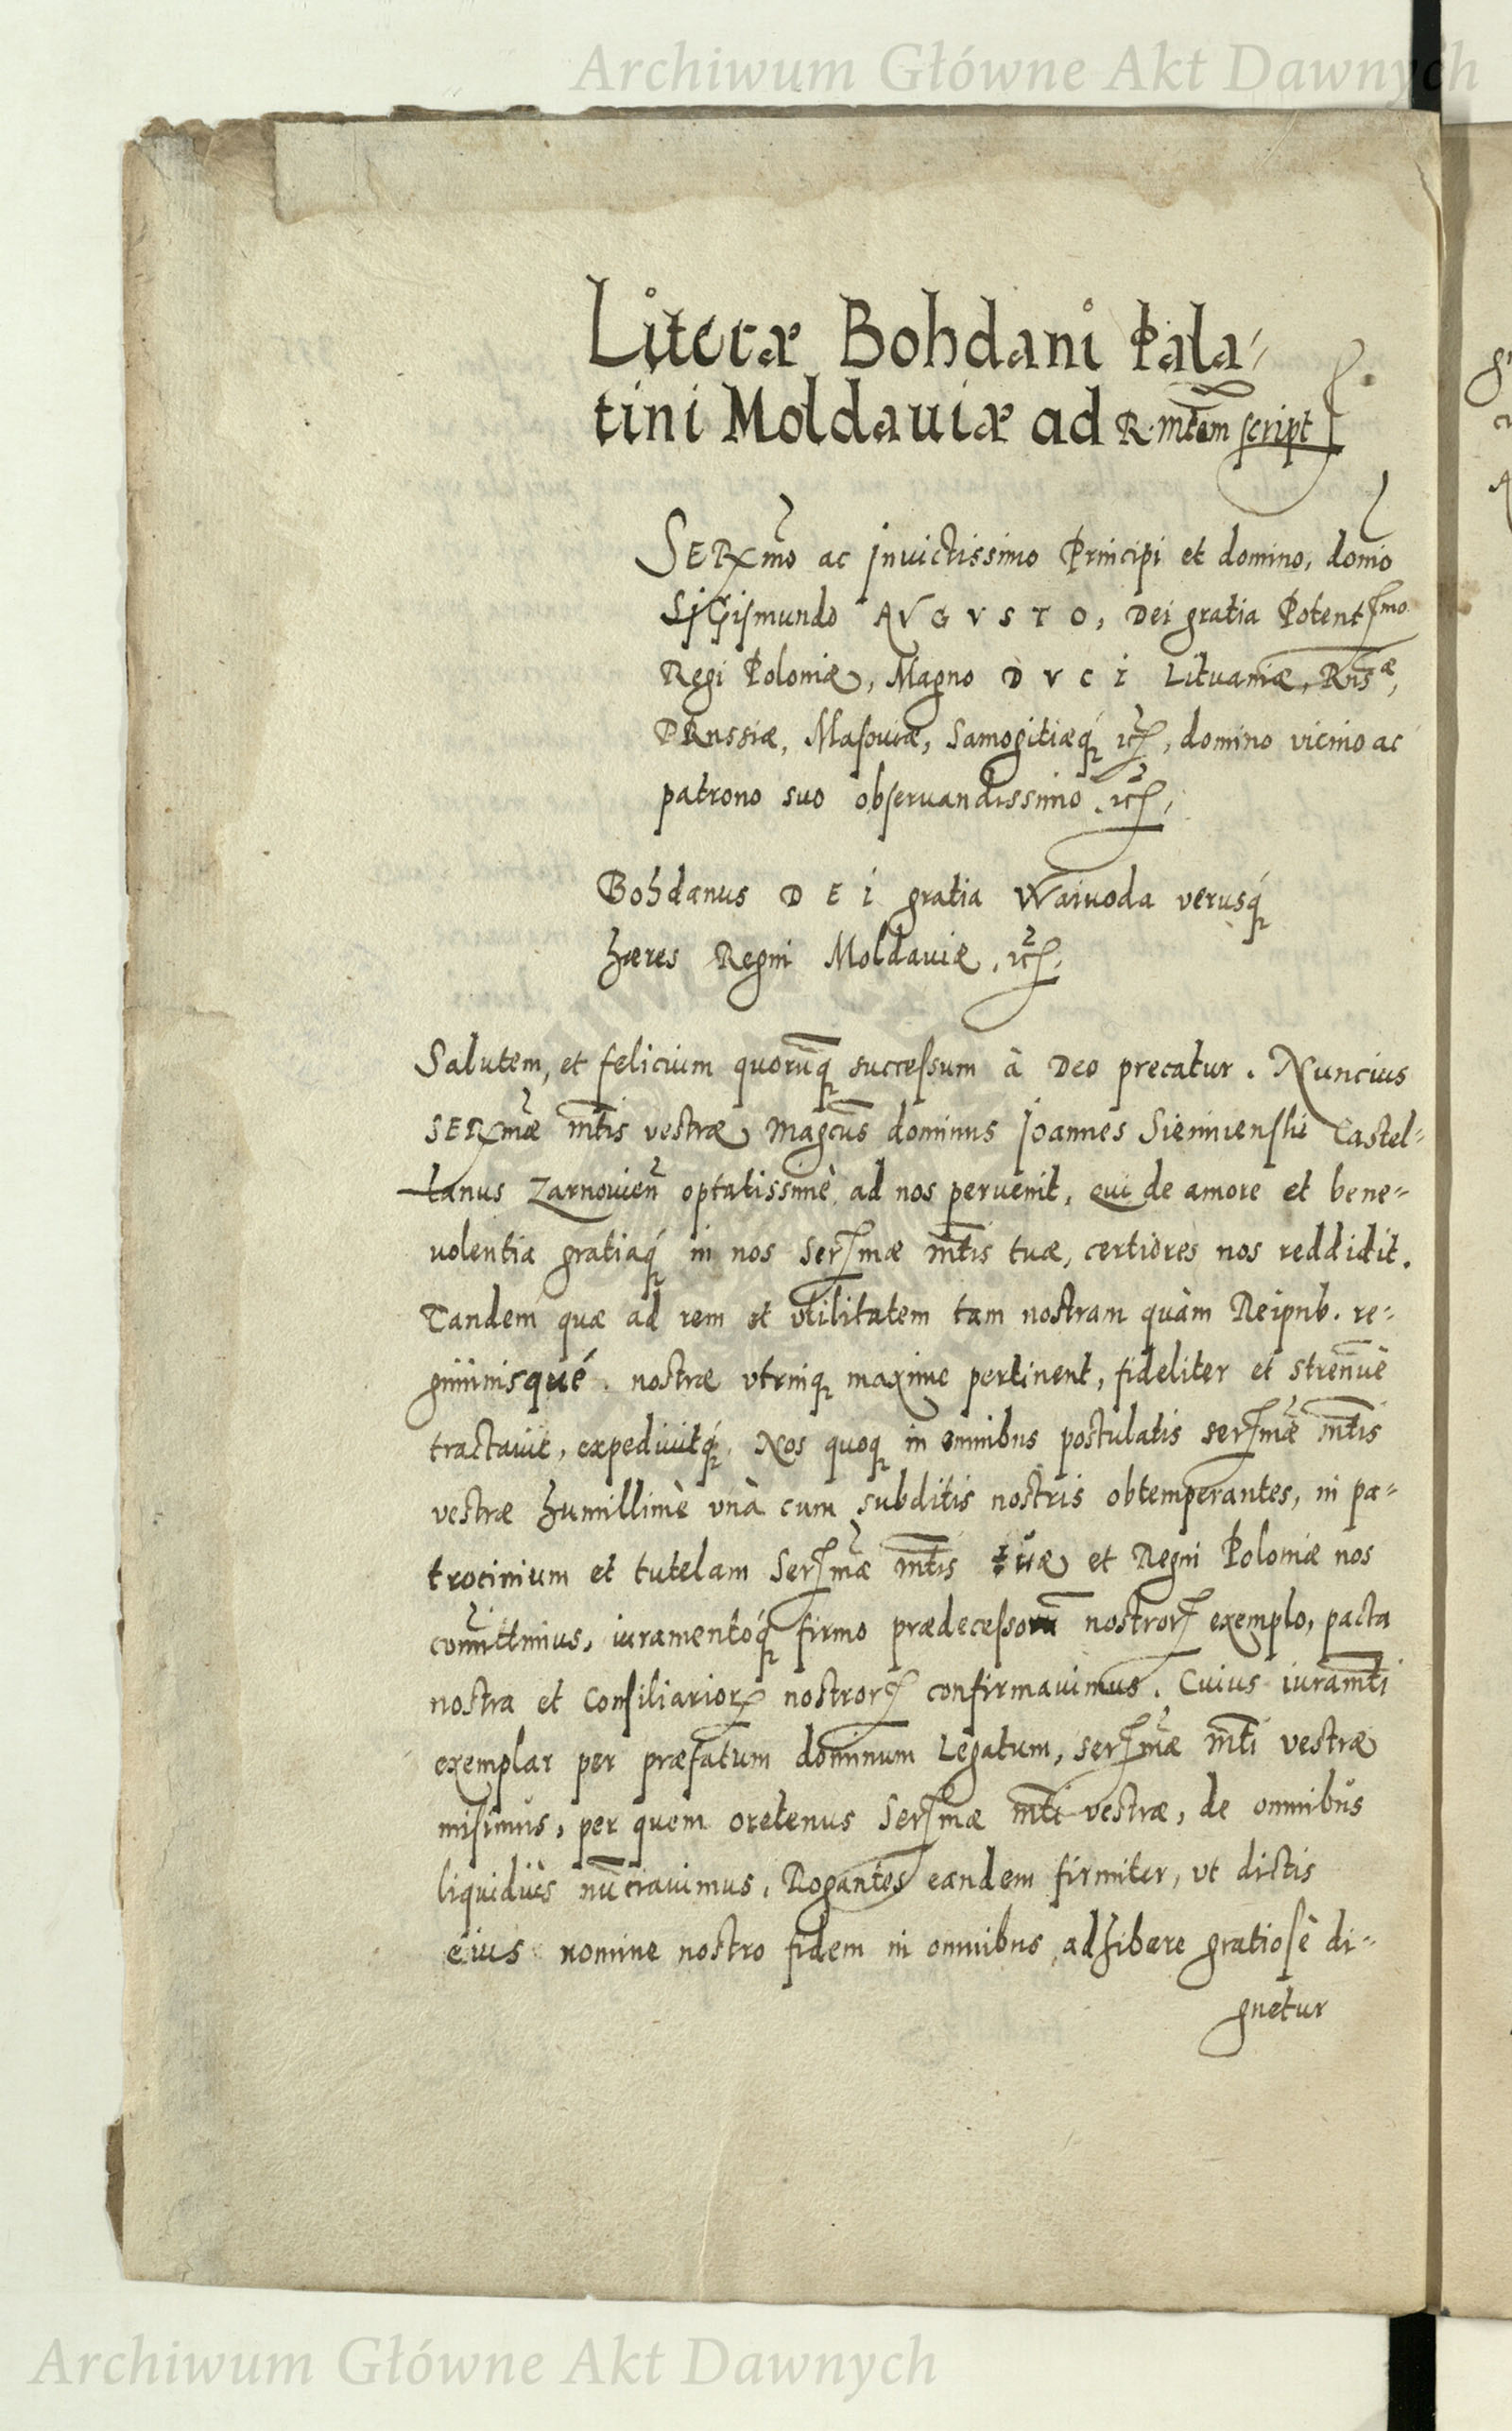 Archiwum Główne Akt Dawnych
Literæ Bohdani Pala-
tini Moldauiæ ad R. mtem script
SERmo ac Jnuictissimo Principi et domino, domio
SiGismundo AVGVSTO, Dei gratia Potentmo
Regi Poloniæ, Magno DVCI Lituaniæ, Risæ,
PRussiæ, Masouiæ, Samogitiæq́ etc, domino vicino ac
patrono suo obseruandissimo. etc,
Bohdanus DEI gratia Waiuoda verusq́
hæres Regni Moldauiæ, etc.
Salutem, et felicium quorūq successum à Deo precatur. Nuncius
SERmæ mtis vestræ Magcus dominus Joannes Sieniienski Castel-
lanus Zarnouien optatissimè ad nos peruenit, qui de amore et bene-
uolentia gratiaq́ in nos Sermæ mtis tuæ, certiores nos reddidit.
Tandem quæ ad rem et vtilitatem tam nostram quàm Reipub. re-
giminisqué. nostræ vtrinq maxime pertinent, fideliter et strenuè
tractauit, expediuitq́. Nos quoq in omnibus postulatis sermæ mtis
vestræ humillimè vnà cum subditis nostris obtemperantes, in pa-
trocinium et tutelam Sermæ mtis tuæ et Regni Poloniæ nos
comittimus, iuramentoq́ firmo prædecessorū nostror exemplo, pacta
nostra et Consiliarior nostror confirmauimus. Cuius iuramti
exemplar per præfatum dominum Legatum, sermæ mti vestræ
misimus, per quem oretenus Sermæ mti vestræ, de omnibus
liquidius nūciauimus, Rogantes eandem firmiter, vt dictis
eius nomine nostro fidem in omnibus adhibere gratiosè di-
gnetur
Archiwum Główne Akt Dawnych